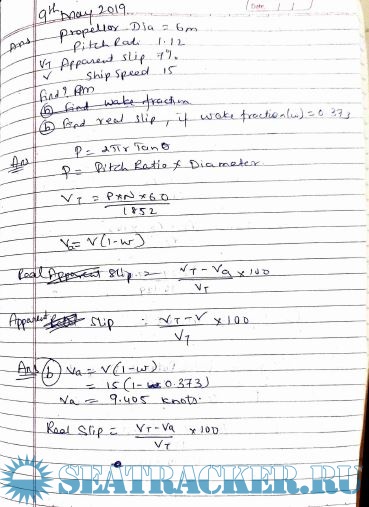 9th May 2019.
Date / /
Ans Propellor Dia = 6m
Pitch Rad. 1.12
VT Apparent slip 7%.
Ship Speed 15
Find?
Find wake fraction
b Find real slip, if wake fraction(w) = 0.373
Ans P = 2πr Tanθ
P = Pitch Ratio × Diameter
VT = P×N×60
1852
= V(1-w)
Real Apparent Slip = VT - Va × 100
VT
Apparent Slip : VT - V × 100
VT
Ans b Va = V(1-w)
= 15(1- 0.373)
Va = 9.405 knots.
Real Slip = VT - Va × 100
VT
SEATRACKER.RU